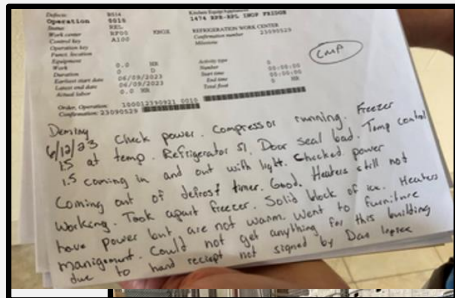 Defects 8014
Operation 0010 Kitchen Equip/Appliances
Status REL 1474 RPR-RPL INOP FRIDGE
Work center RF00 FRGE REFRIGERATION WORK CENTER
Control key A100 Confirmation number 23090529
Operation key Milestone
Funct location
Equipment CMP
Work 0.0 HR Activity type 0
Duration 0 D Number 0
Earliest start date 06/09/2023 Start time 00:00:00
Latest end date 06/09/2023 End time 00:00:00
Actual labor 0.0 HR Total float 0
Order, Operation: 100012390821 0010
Confirmation: 23090529
Deming Check power. Compressor running. Freezer
6/12/23 at temp. Refrigerator 51. Door seal bad. Temp control
1.5 coming in and out with light. Checked power
Coming out of defrost timer. Good. Heaters still not
Working. Took apart freezer. Solid block of ice. Heaters
have power but are not warm. Went to furniture
manigment. Could not get anything for this building
due to hand reciept not signed by Dan